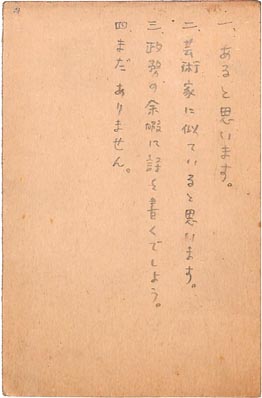 一、あると思います。
二、芸術家に似ていると思います。
三、政務の余暇に詩を書くでしょう。
四まだありません。